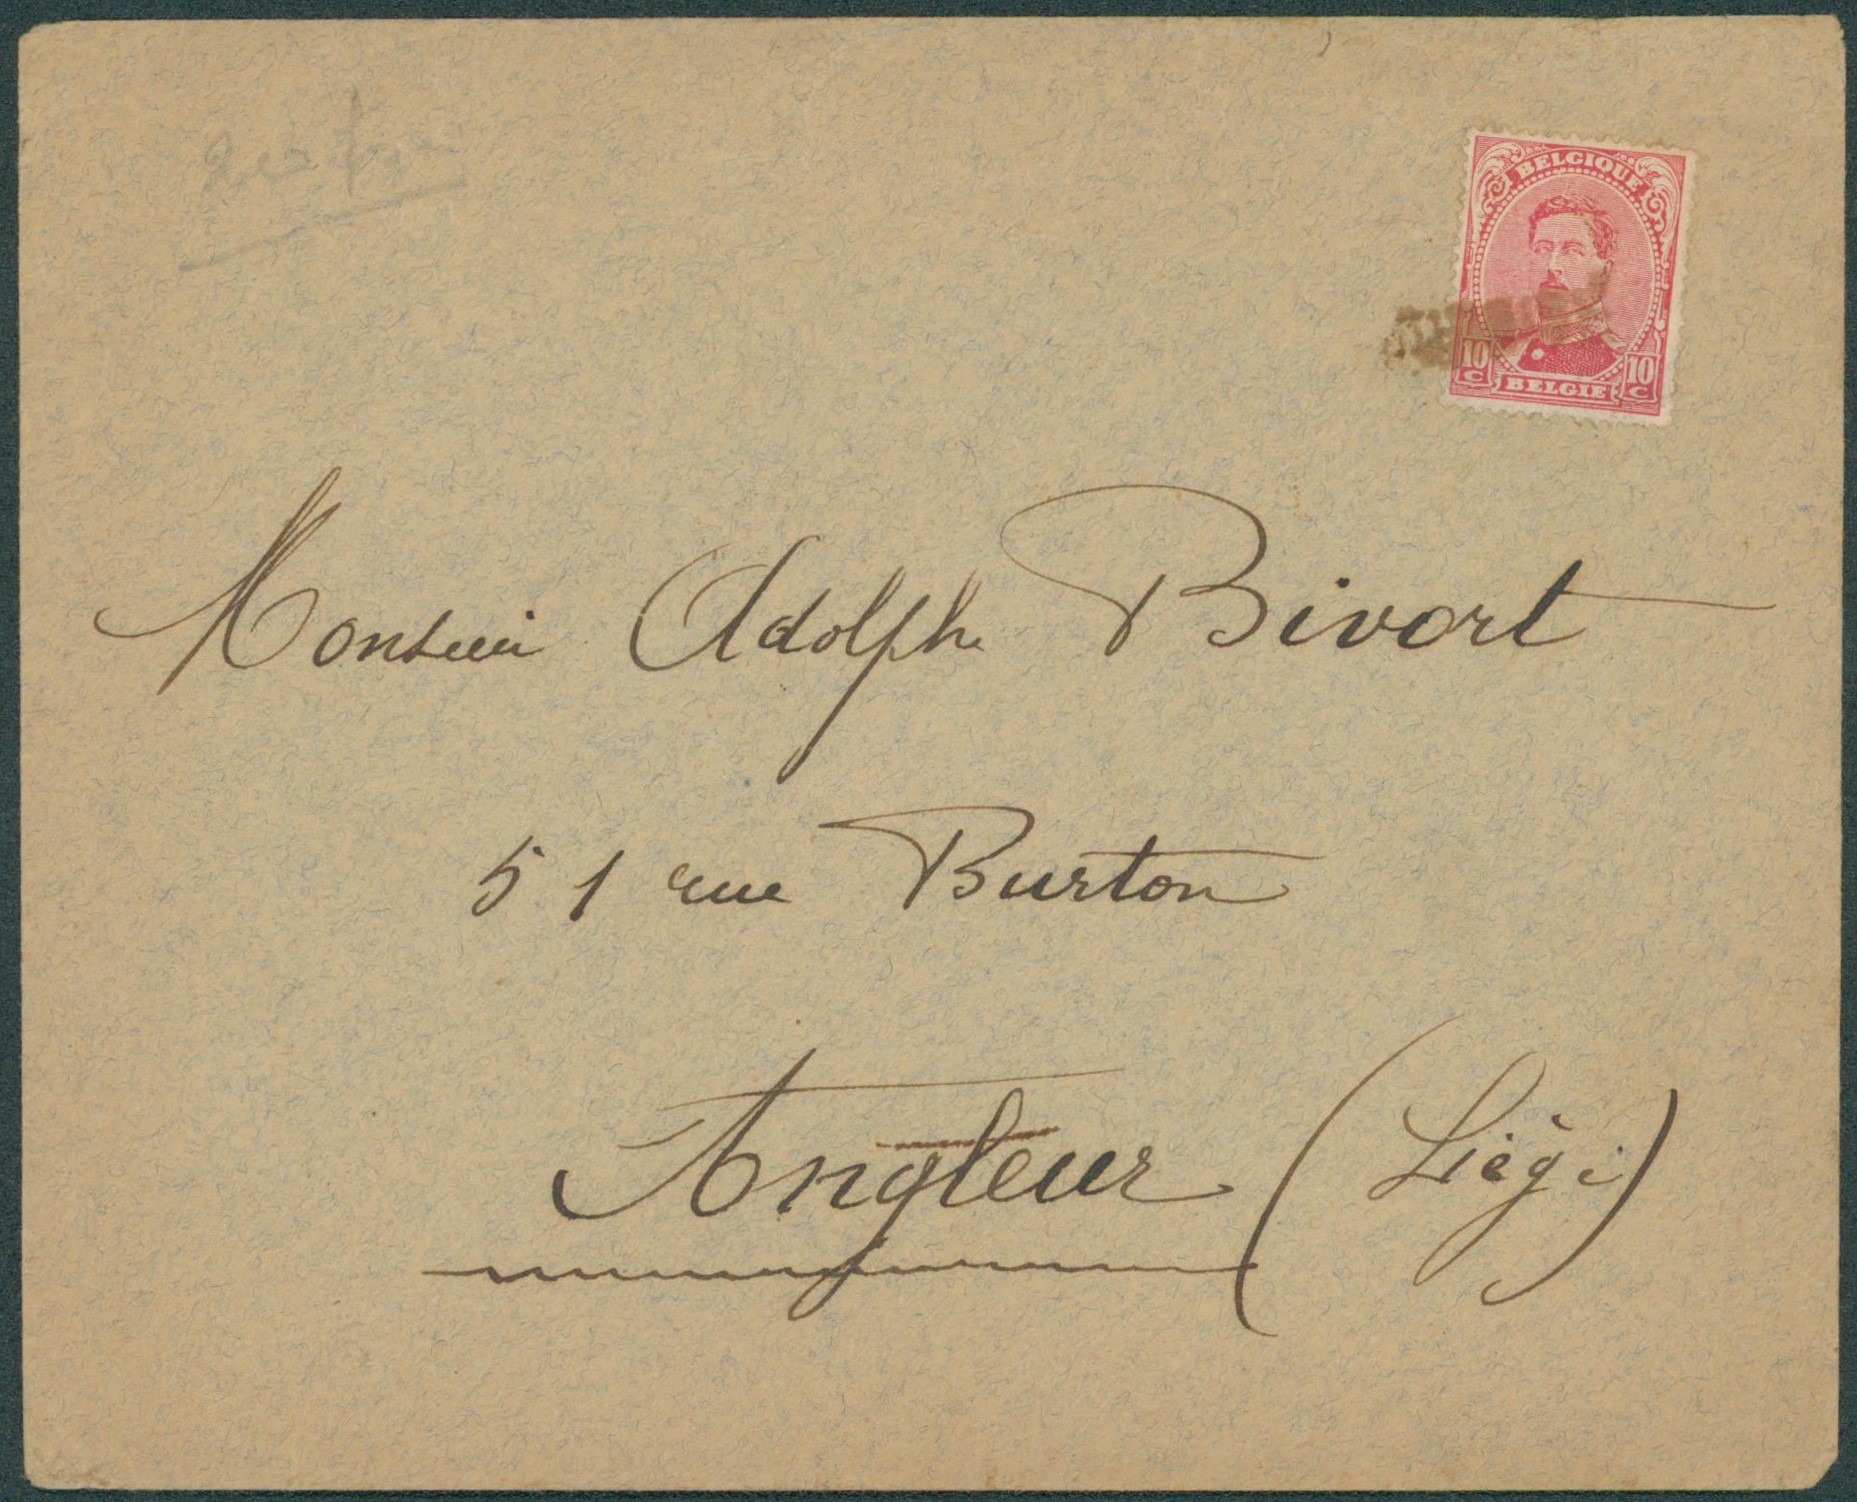 BELGIQUE
10 C 10 C
BELGIE
Monsieur Adolphe Bivort
51 rue Burton
Angleur (Liège)